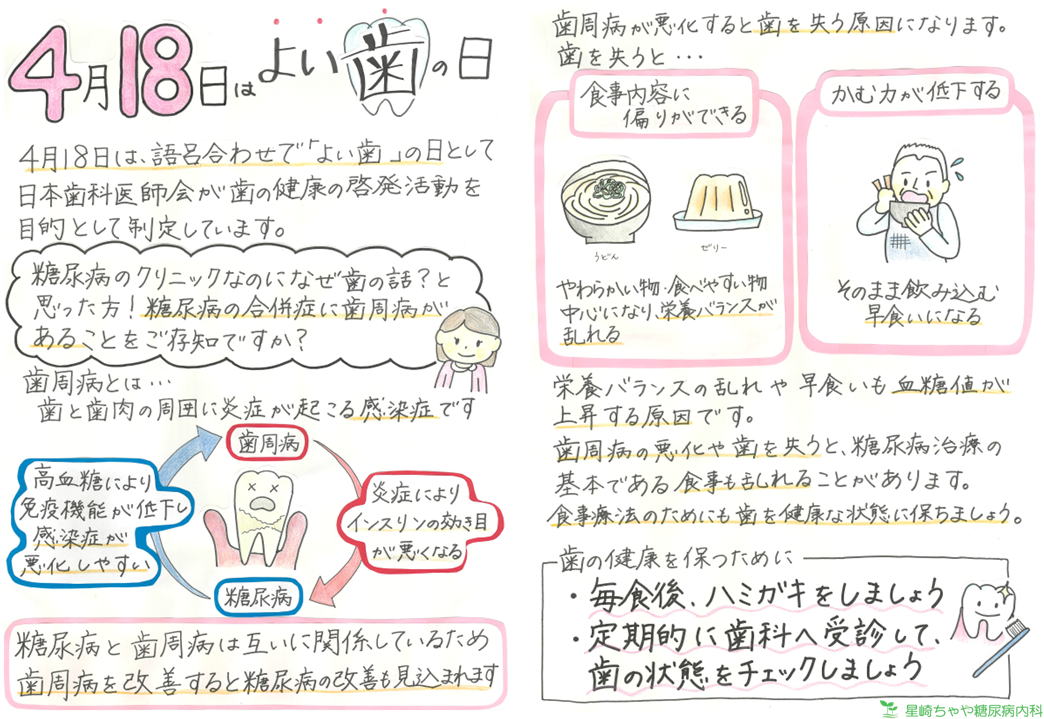 4月18日はよい歯の日
4月18日は、語呂合わせで「よい歯」の日として
日本歯科医師会が歯の健康の啓発活動を
目的として制定しています。
糖尿病のクリニックなのになぜ歯の話？と
思った方！糖尿病の合併症に歯周病が
あることをご存知ですか？
歯周病とは…
歯と歯肉の周囲に炎症が起こる感染症です
歯周病
高血糖により
免疫機能が低下し
感染症が
悪化しやすい
炎症により
インスリンの効き目
が悪くなる
糖尿病
糖尿病と歯周病は互いに関係しているため
歯周病を改善すると糖尿病の改善も見込まれます
歯周病が悪化すると歯を失う原因になります。
歯を失うと…
食事内容に
偏りができる
うどん
ゼリー
やわらかい物・食べやすい物
中心になり、栄養バランスが
乱れる
かむ力が低下する
そのまま飲み込む
早食いになる
栄養バランスの乱れや早食いも血糖値が
上昇する原因です。
歯周病の悪化や歯を失うと、糖尿病治療の
基本である食事も乱れることがあります。
食事療法のためにも歯を健康な状態に保ちましょう。
歯の健康を保つために
・毎食後、ハミガキをしましょう
・定期的に歯科へ受診して、
歯の状態をチェックしましょう
星崎ちゃや糖尿病内科